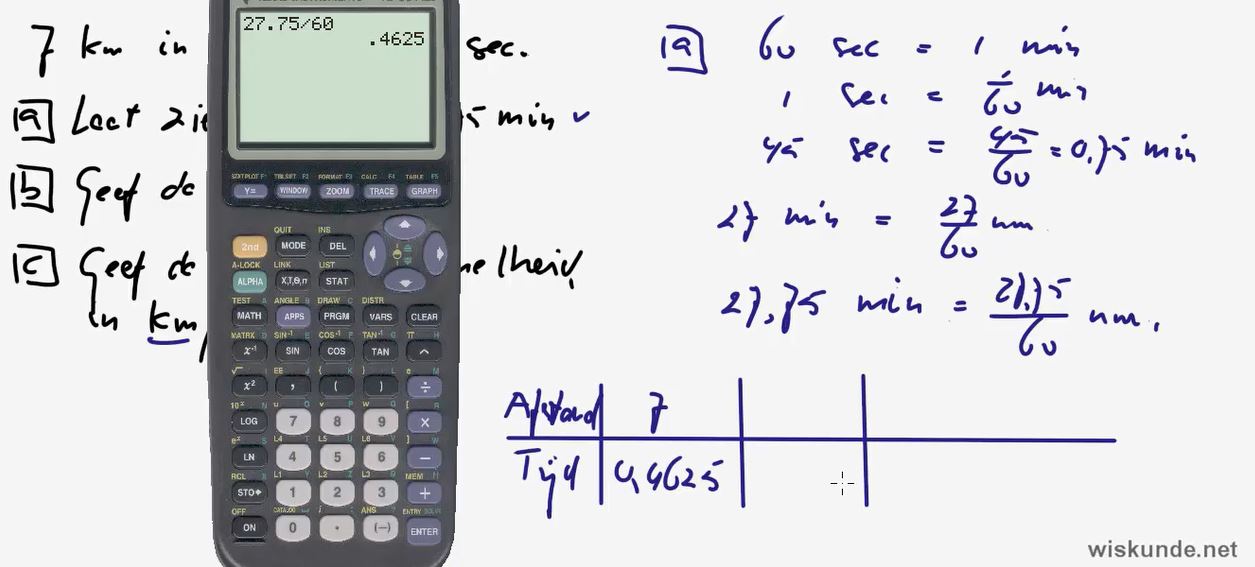 7 km in sec.
1a Laat zie 5 min
1b Geef de
1c Geef de nelheid
in km
27.75/60
.4625
STAT PLOT F1 TBLSET F2 FORMAT F3 CALC F4 TABLE F5
Y= WINDOW ZOOM TRACE GRAPH
QUIT INS
2nd MODE DEL
A-LOCK LINK LIST
ALPHA X,T,θ,n STAT
TEST A ANGLE B DRAW C DISTR
MATH APPS PRGM VARS CLEAR
MATRX D SIN⁻¹ E COS⁻¹ F TAN⁻¹ G π H
x⁻¹ SIN COS TAN ^
√ I EE J { K } L e M
x² , ( ) ÷
10ˣ N u O v P w Q [ R
LOG 7 8 9 ×
eˣ S L4 T L5 U L6 V ] W
LN 4 5 6 −
RCL X L1 Y L2 Z L3 θ MEM "
STO▸ 1 2 3 +
OFF CATALOG i : ANS ? ENTRY SOLVE
ON 0 . (−) ENTER
1a 60 sec = 1 min
1 sec = 1/60 min
45 sec = 45/60 = 0,75 min
27 min = 27/60 uur
27,75 min = 27,75/60 uur.
Afstand 7
Tijd 0,4625
wiskunde.net